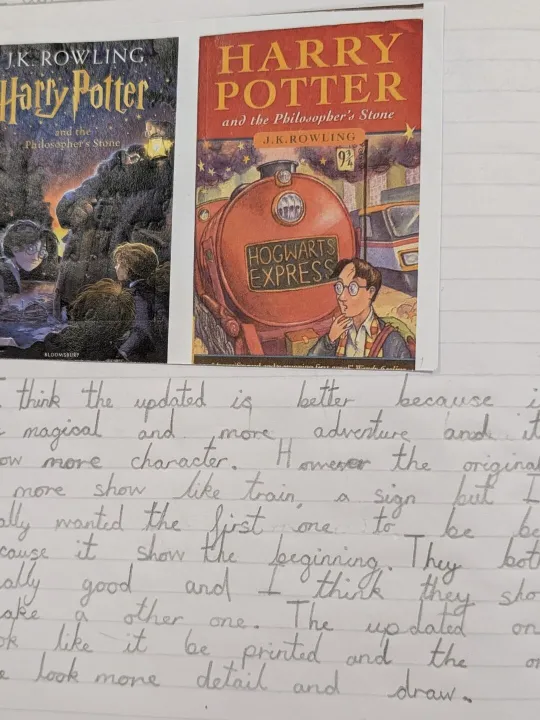 J.K. ROWLING
Harry Potter
and the
Philosopher's Stone
BLOOMSBURY
HARRY
POTTER
and the Philosopher's Stone
J.K.ROWLING
9¾
HOGWARTS
EXPRESS
think the updated is better because i
magical and more adventure and it
ow more character. However the original
more show like train, a sign but I
ally wanted the first one to be be
cause it show the beginning. They both
eally good and I think they sho
ake a other one. The updated on
ok like it be printed and the o
e look more detail and draw.